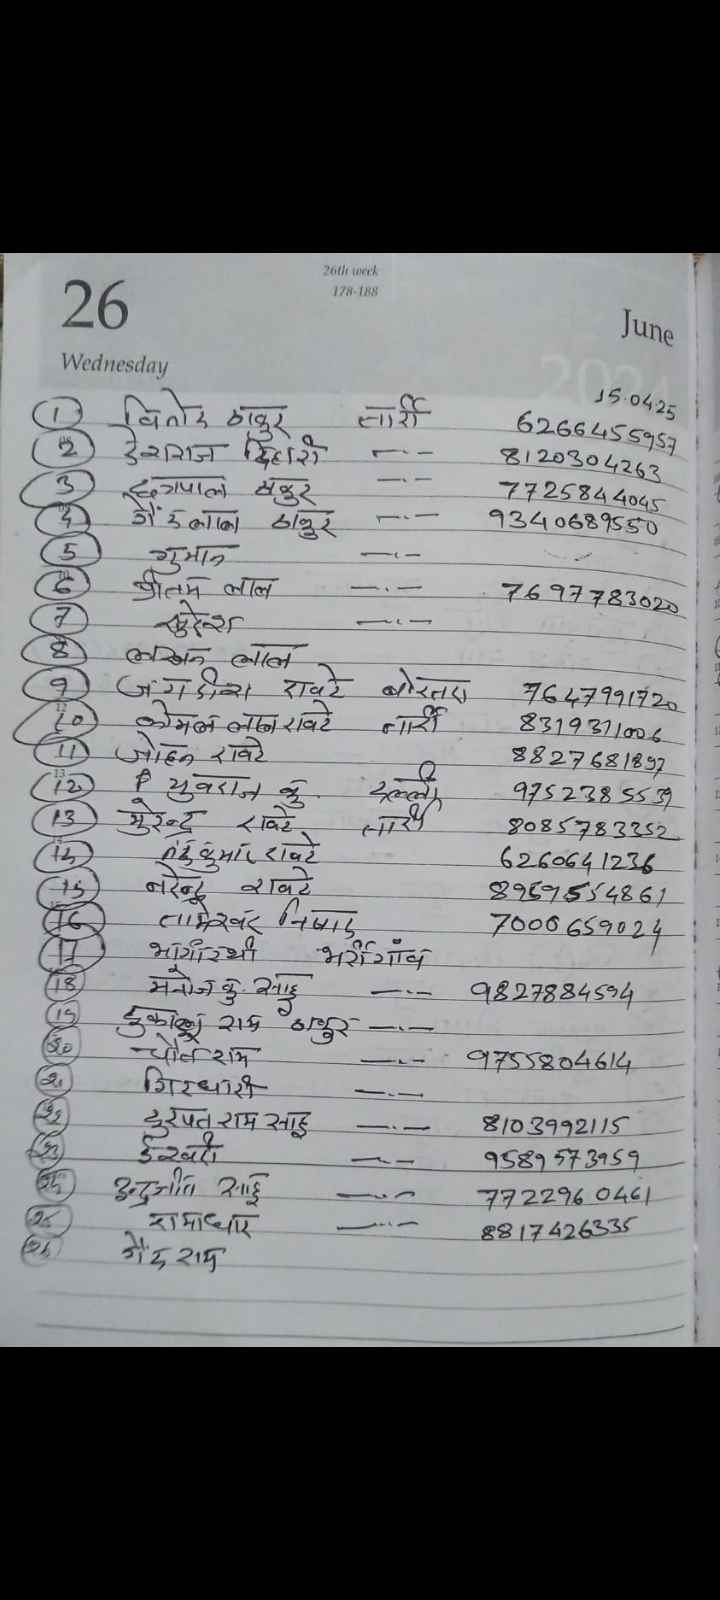 26th week
178-188
26
June
Wednesday
15.04.25
1 विनोद ठाकुर लारी 6266455957
2 देशराज बिहारी —·— 8120304263
3 ठाकुर —·— 7725844045
4 गैंदलाल ठाकुर —·— 9340689550
5 गुमान —·—
6 प्रीतम लाल —·— 7697783020
7 सुरेश —·—
8 लखन लाल
9 जगदीश रावटे 7647991720
10 कोमल लाल रावटे लारी 8319311006
11 जोहन रावटे 8827681897
12 युवराज कु. दल्ली 9752385539
13 सुरेन्द्र रावटे लारी 8085783352
14 नंदकुमार रावटे 6260641236
15 नरेन्द्र रावटे 8959554861
16 तामेश्वर निषाद 7000659024
17 भागीरथी भर्रीगांव
18 मनोज कु. साहू —·— 9827884594
19 राम ठाकुर —·—
20 चैन राम —·— 9755804614
21 गिरधारी —·—
22 राम साहू —·— 8103992115
23 ईश्वरी —·— 9589573959
24 इन्द्रजीत साहू —·— 7722960461
25 रामाधार —·— 8817426335
26 गैंद राम